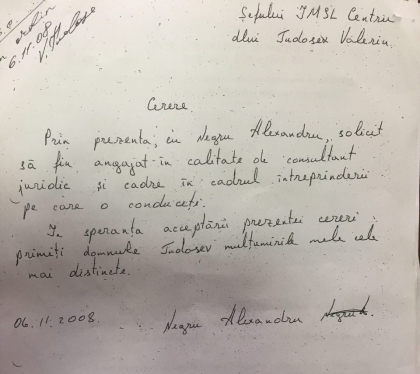 ordin
6.11.08
Șefului IMSL Centru
dlui Tudosev Valeriu.
Cerere.
Prin prezenta, eu Negru Alexandru, solicit
să fiu angajat în calitate de consultant
juridic și cadre în cadrul întreprinderii
pe care o conduceți.
În speranța acceptării prezentei cereri
primiți domnule Tudosev mulțumirile mele cele
mai distincte.
06.11.2008. Negru Alexandru Negru A.